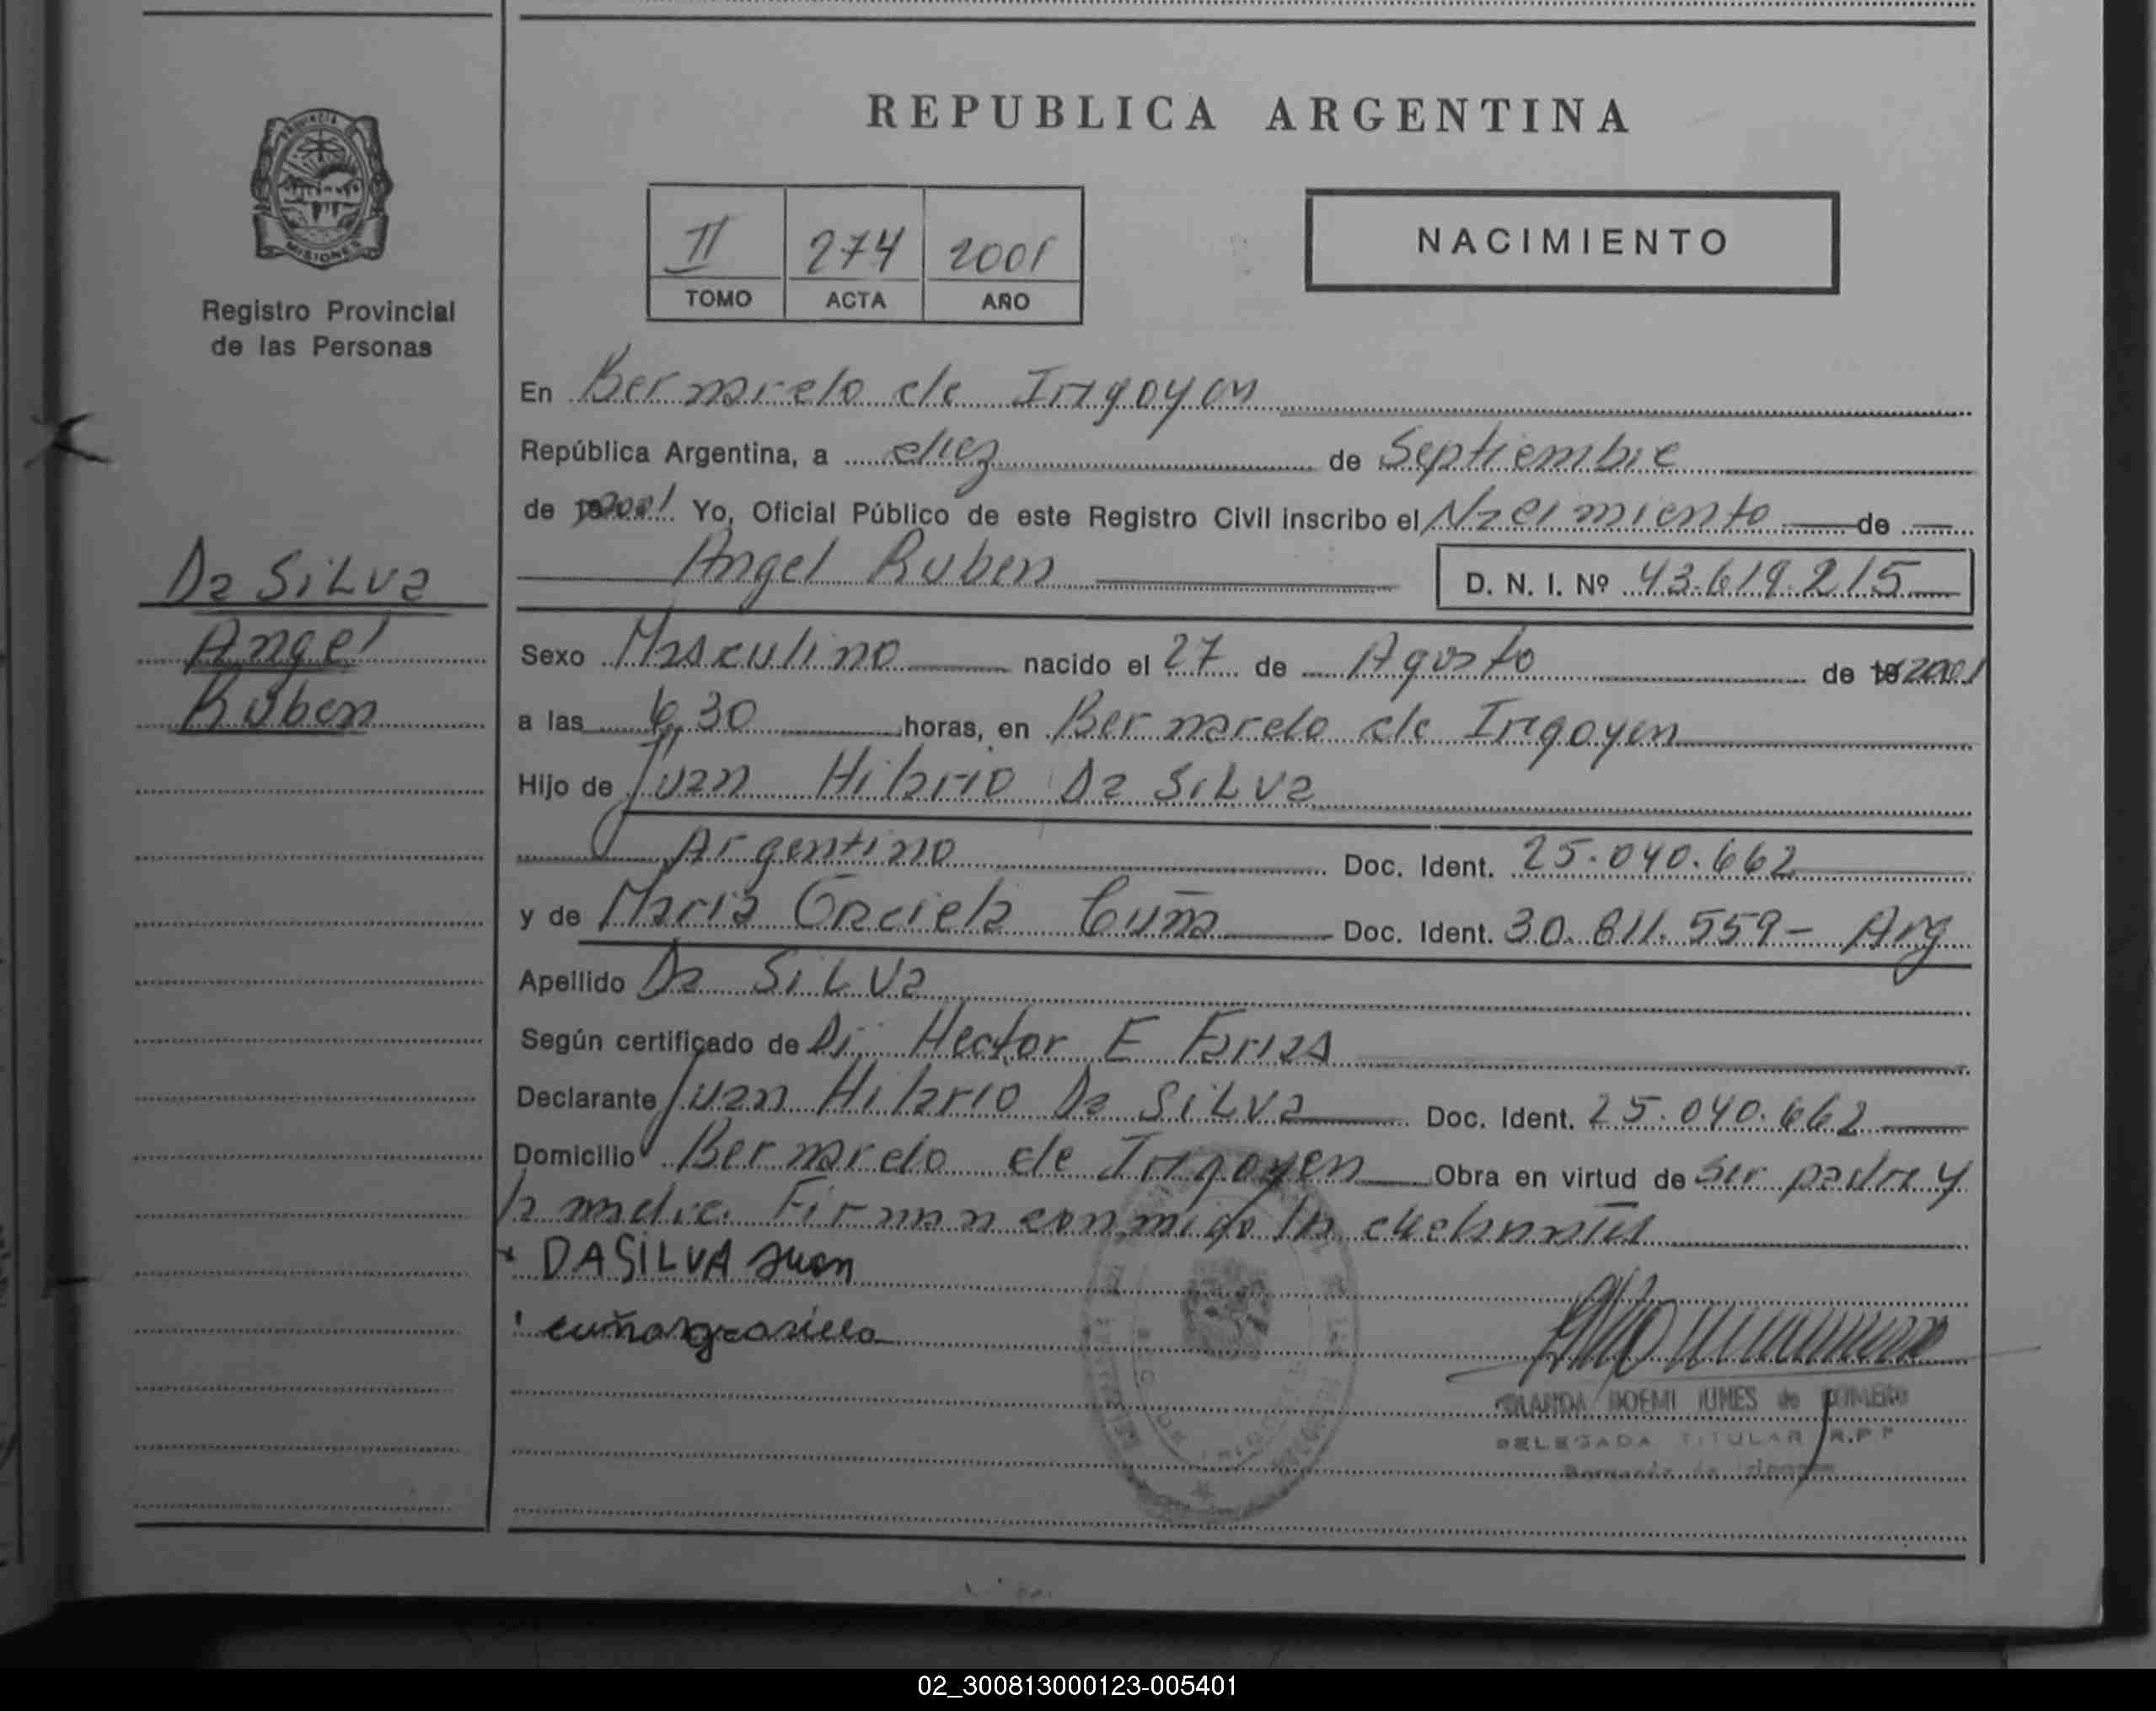 REPUBLICA ARGENTINA
PROVINCIA
MISIONES
Registro Provincial
de las Personas
II 274 2001
TOMO ACTA AÑO
NACIMIENTO
Da SiLva
Angel
Ruben
En Bernardo de Irigoyen
República Argentina, a diez de Septiembre
de 2001 Yo, Oficial Público de este Registro Civil inscribo el Nacimiento de
Angel Ruben D. N. I. Nº 43.619.215
Sexo Masculino nacido el 27 de Agosto de 19 2001
a las 6,30 horas, en Bernardo de Irigoyen
Hijo de Juan Hilario Da SiLva
Argentino Doc. Ident. 25.040.662
y de Maria Graciela Cuña Doc. Ident. 30.811.559- Arg
Apellido Da SiLva
Según certificado de Dr. Hector E Farias
Declarante Juan Hilario Da SiLva Doc. Ident. 25.040.662
Domicilio Bernardo de Irigoyen Obra en virtud de ser padre y
la madre. Firman conmigo
DASILVA Juan
cuña graciela
NOEMI de ROMERO
DELEGADA TITULAR R.P.P
Bernardo de Irigoyen
02_300813000123-005401